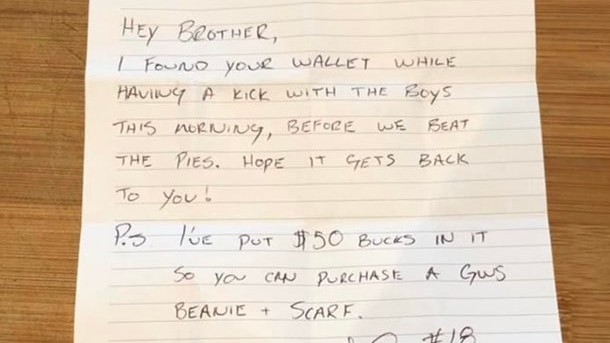 HEY BROTHER,
I FOUND YOUR WALLET WHILE
HAVING A KICK WITH THE BOYS
THIS MORNING, BEFORE WE BEAT
THE PIES. HOPE IT GETS BACK
TO YOU!
P.S I'VE PUT $50 BUCKS IN IT
SO YOU CAN PURCHASE A GWS
BEANIE + SCARF.
#18